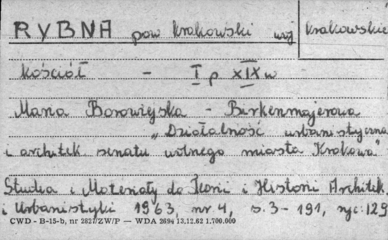 RYBNA pow krakowski woj krakowskie
Kościół - I p XIX w
Maria Borowiejska - Birkenmajerowa
"Działalność urbanistyczna
i architek senatu wolnego miasta Krakowa"
Studia i Materiały do Teorii i Historii Architek.
i Urbanistyki 1963, nr 4, s. 3-191, ryc: 129
CWD - B-15-b, nr 2827/ZW/P — WDA 2694 13.12.62 1.700.000